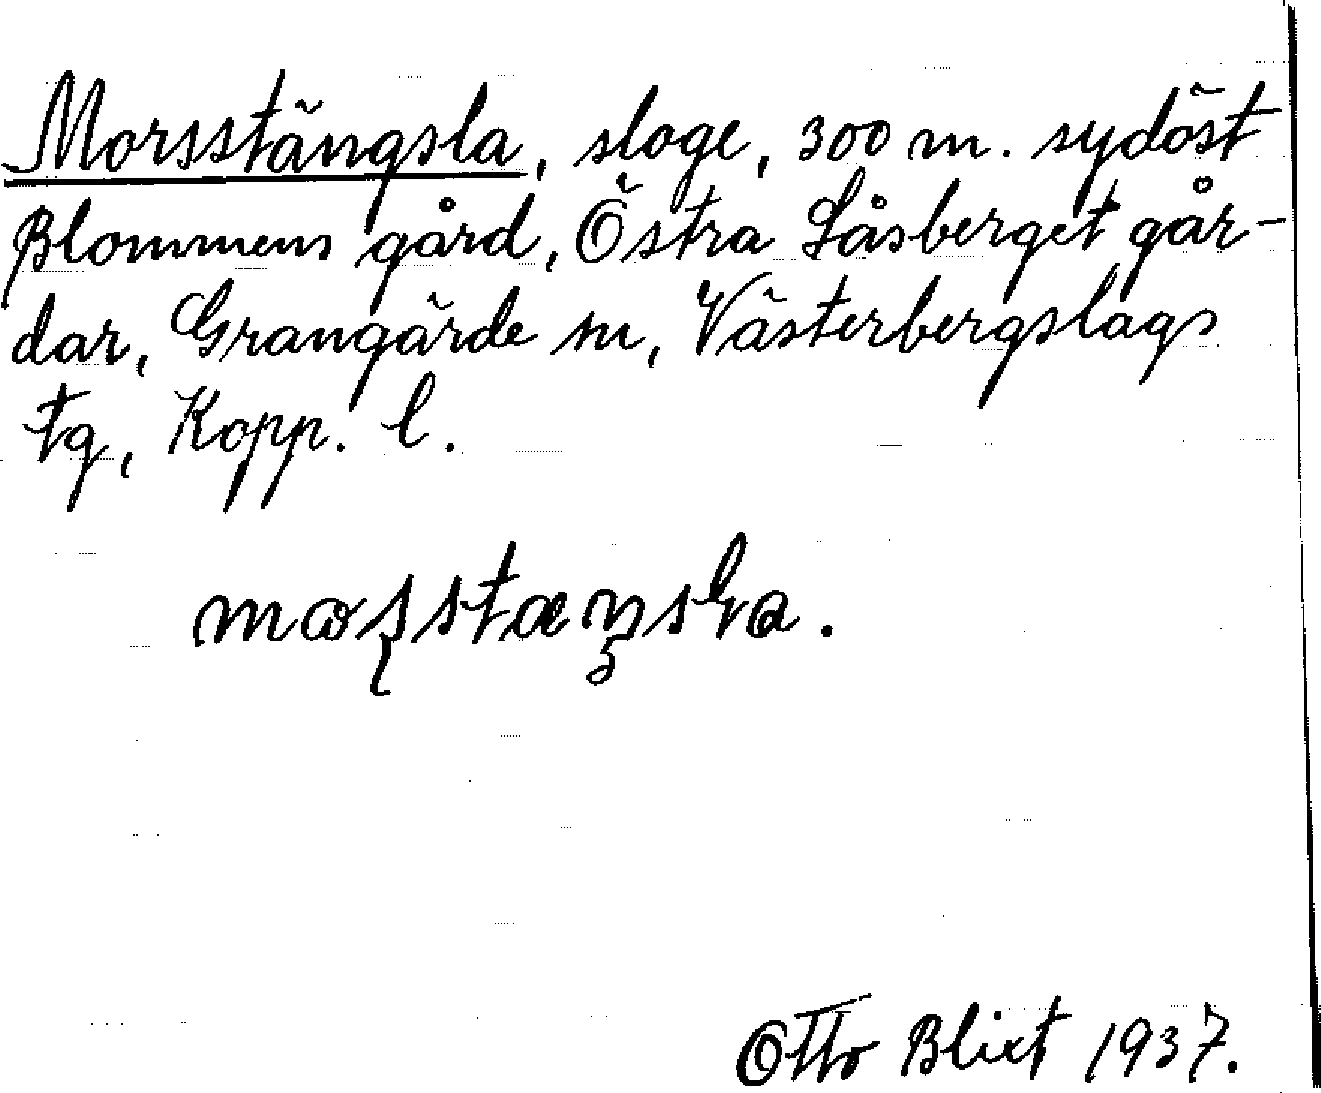 Morsstängsla, sloge, 300 m. sydöst
Blommens gård, Östra Låsberget går-
dar, Grangärde sn, Västerbergslags
tg, Kopp. l.
Otto Blixt 1937.